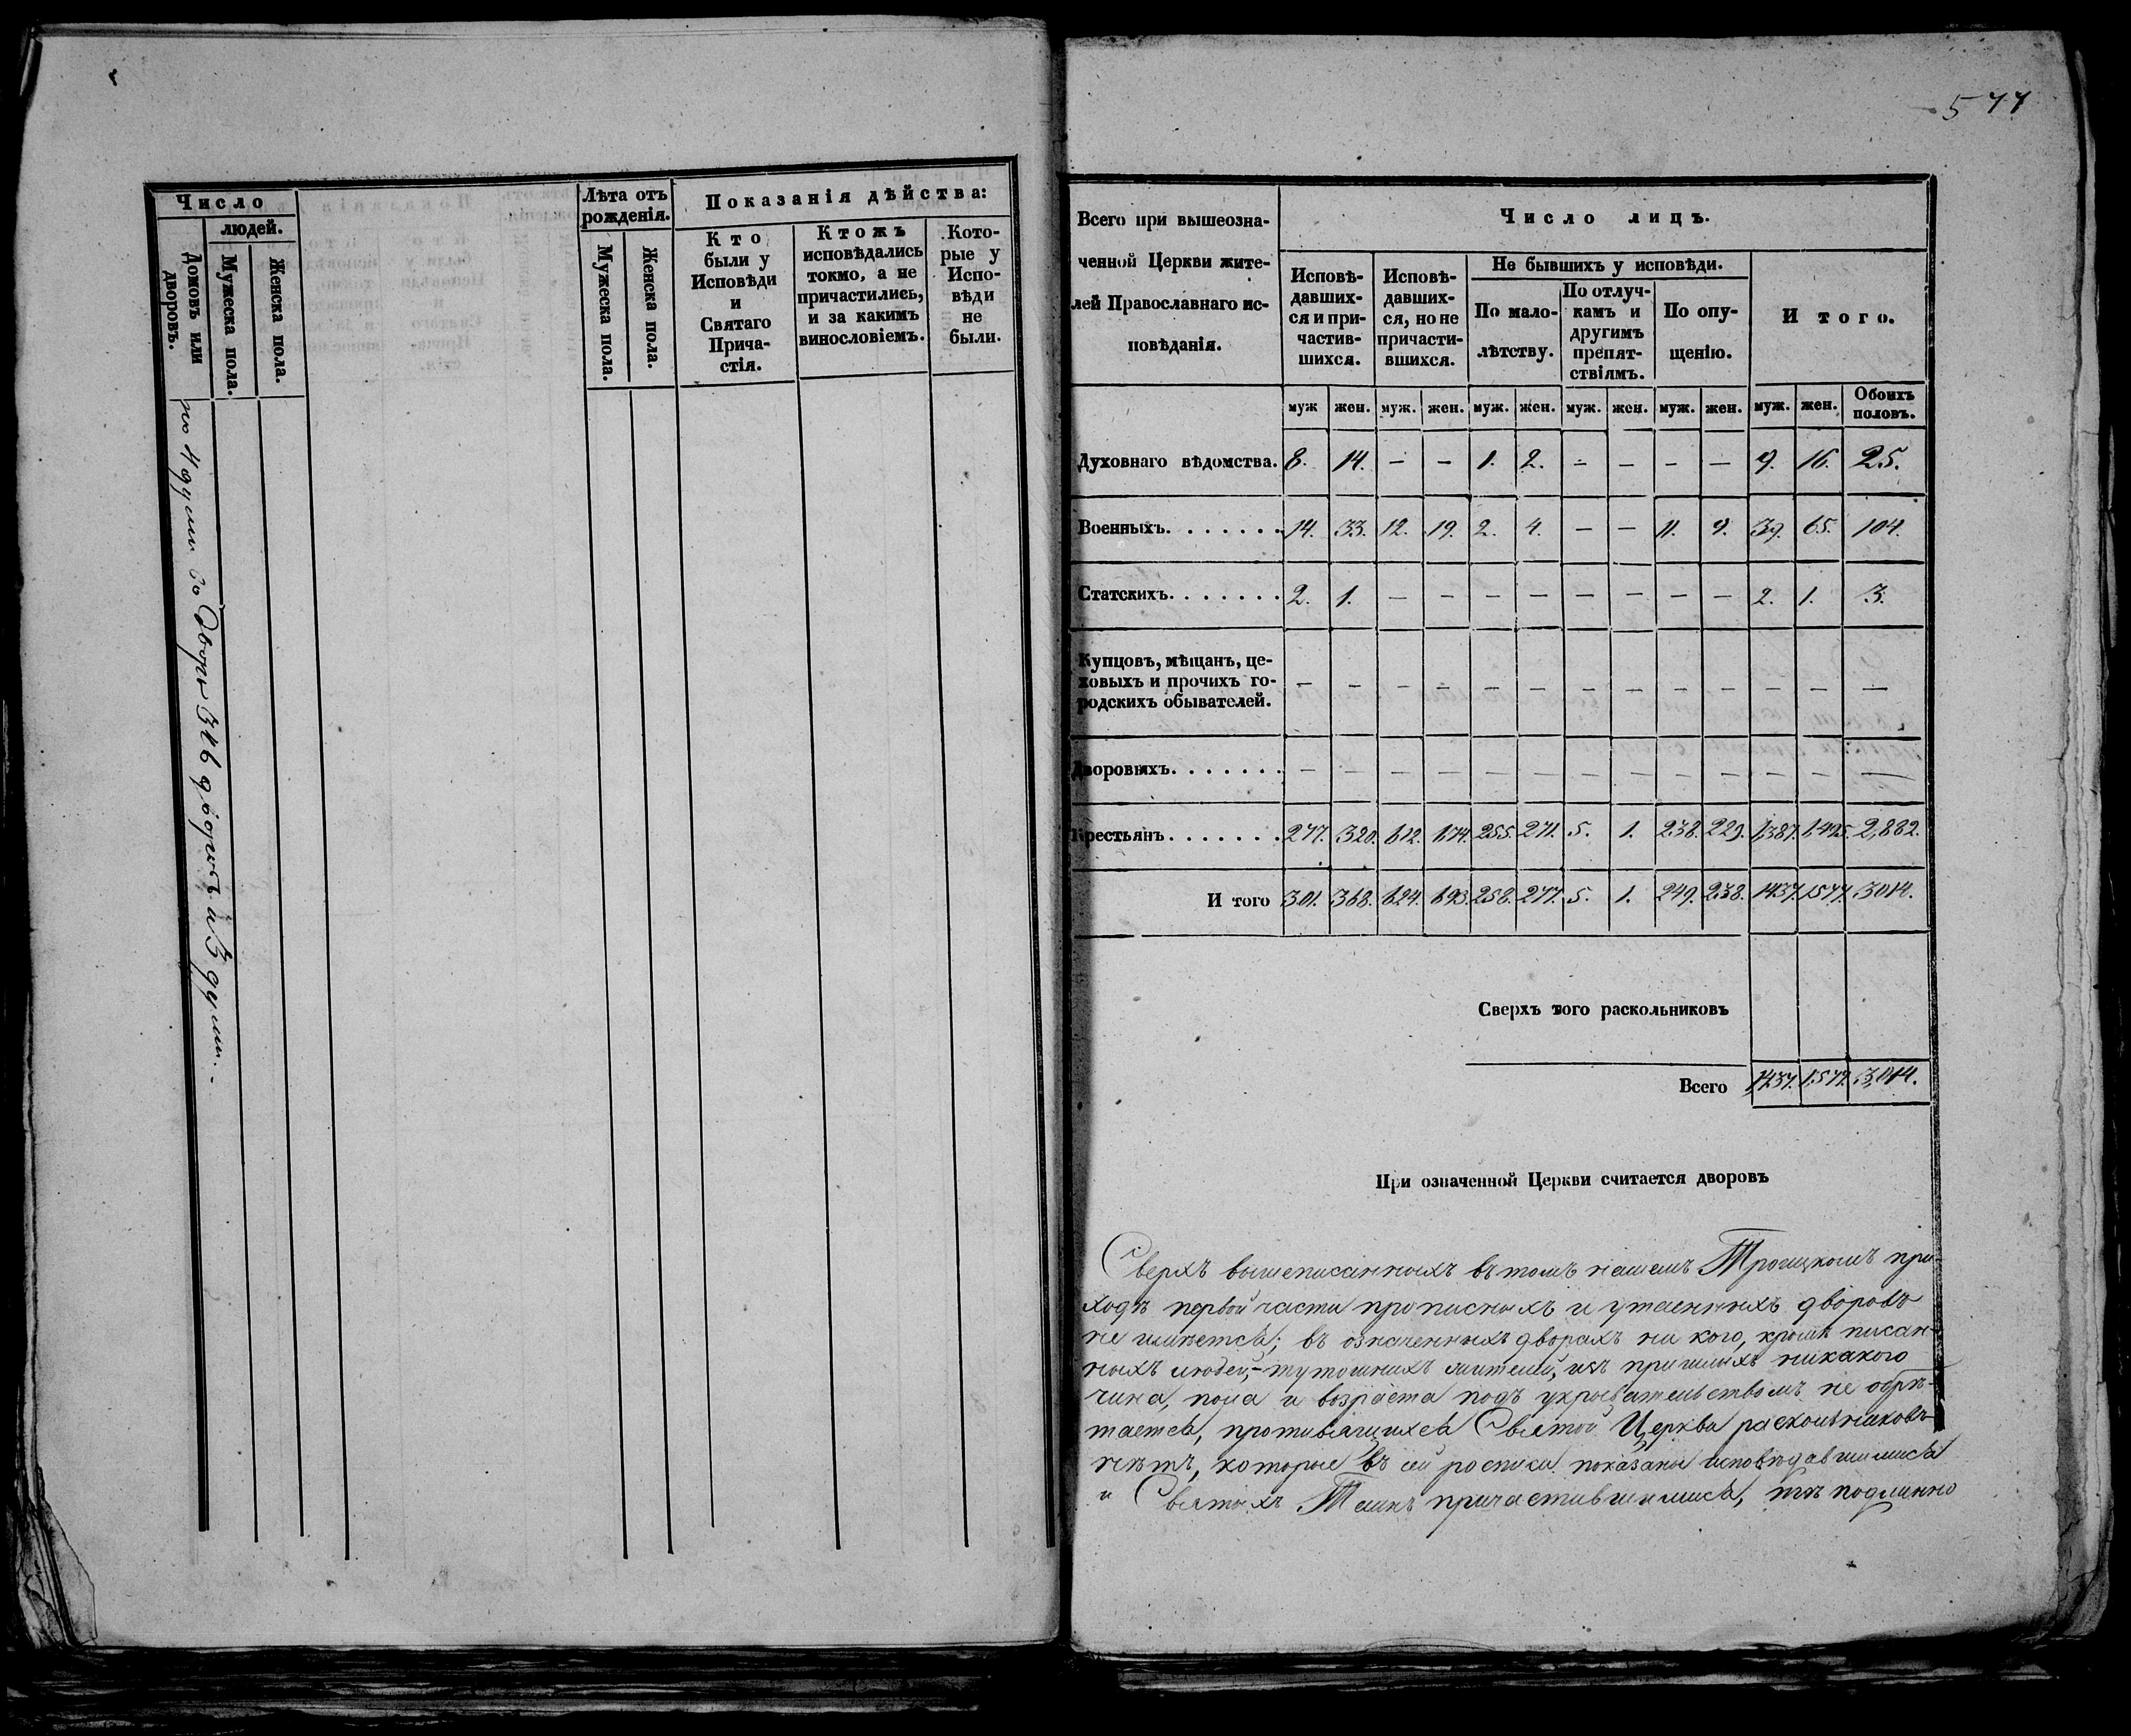 Число
людей.
Домовъ или дворовъ.
Мужеска пола.
Женска пола.
Лѣта отъ рожденія.
Мужеска пола.
Женска пола.
Показанія дѣйства:
Кто
были у
Исповѣди
и
Святаго
Прича-
стія.
Ктожъ
исповѣдались
токмо, а не
причастились,
и за какимъ
винословіемъ.
Кото-
рые у
Испо-
вѣди
не
были.
по 4 души во Дворѣ
577
Всего при вышеозна-
ченной Церкви жите-
лей Православнаго ис-
повѣданія.
Число лицъ.
Исповѣ-
давших-
ся и при-
частив-
шихся.
Исповѣ-
давших-
ся, но не
причасти-
вшихся.
Не бывшихъ у исповѣди.
По мало-
лѣтству.
По отлуч-
камъ и
другимъ
препят-
ствіямъ.
По опу-
щенію.
Итого.
муж жен. муж. жен. муж. жен. муж. жен. муж. жен. муж. жен. Обоихъ половъ.
Духовнаго вѣдомства. 8. 14. – – 1. 2. – – – – 9. 16. 25.
Военныхъ. . . . . . . 14. 33. 12. 19. 2. 4. – – 11. 9. 39. 65. 104.
Статскихъ. . . . . . . 2. 1. – – – – – – – – 2. 1. 3.
Купцовъ, мѣщанъ, це-
ховыхъ и прочихъ го-
родскихъ обывателей. – – – – – – – – – – – – –
Дворовыхъ. . . . . . . – – – – – – – – – – – – –
Крестьянъ. . . . . . . 277. 320. 612. 674. 255. 271. 5. 1. 238. 229. 1,387. 1,495. 2,882.
И того 301. 368. 624. 693. 258. 277. 5. 1. 249. 238. 1437. 1577. 3014.
Сверхъ того раскольниковъ
Всего 1437. 1577. 3,014.
При означенной Церкви считается дворовъ
Сверхъ вышеписанныхъ въ томъ нашемъ Троицкомъ при-
ходѣ первой части прописныхъ и утаенныхъ дворовъ
не имѣется; въ означенныхъ дворахъ ни кого, кромѣ писан-
ныхъ людей, тутошнихъ жителей, изъ пришлыхъ никакого
чина, пола и возраста подъ укрывательствомъ не обрѣ-
тается, противящихся Святой Церкви раскольниковъ
нѣтъ, которые въ сей росписи показаны исповѣдавшимися
и Святыхъ Таинъ причастившимися, тѣ подлинно